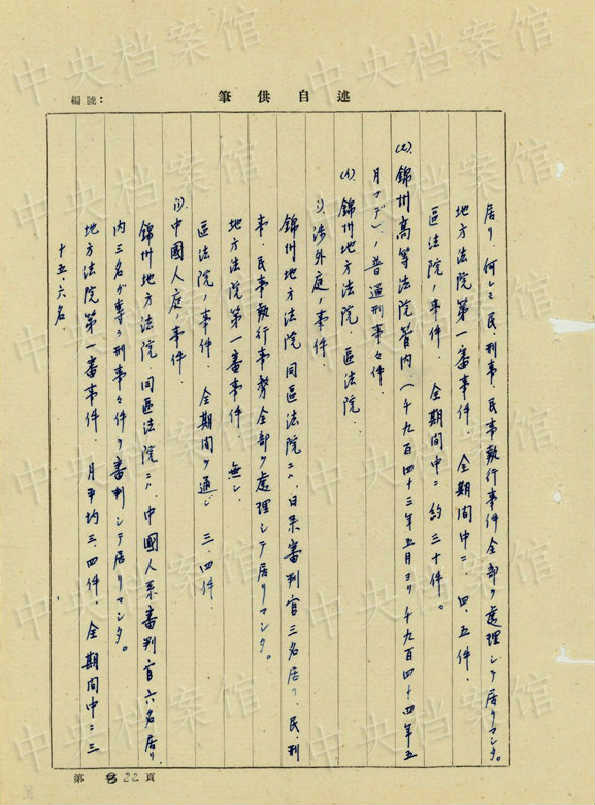 述自供筆
編號：
居リ、何レモ民、刑事、民事執行事件全部ヲ處理シテ居リマシタ。
地方法院第一審事件．全期間中ニ、四、五件．
區法院ノ事件．全期間中ニ約三十件。
(2)．錦州高等法院管内（一千九百四十三年五月ヨリ一千九百四十四年五
月マデ）ノ普通刑事々件．
(イ)錦州地方法院、區法院．
i)涉外庭ノ事件．
錦州地方法院、同區法院ニハ、日系審判官三名居リ、民、刑
事、民事執行事務全部ヲ處理シテ居リマシタ。
地方法院第一審事件．無シ．
區法院ノ事件．全期間ヲ通ジ三、四件．
ii)中國人庭ノ事件．
錦州地方法院、同區法院ニハ、中國人系審判官六名居リ、
内三名ガ専ラ刑事々件ヲ審判シテ居リマシタ。
地方法院第一審事件．月平均三、四件．全期間中ニ三
十五、六名．
第 22 頁
中央档案馆